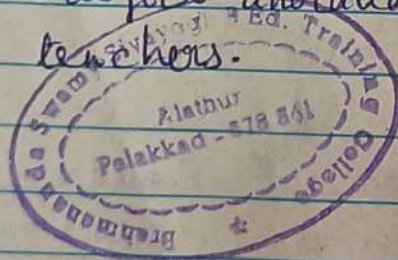 teachers.
Brahmananda Swami Sivayogi B Ed. Training College
Alathur
Palakkad - 678 541